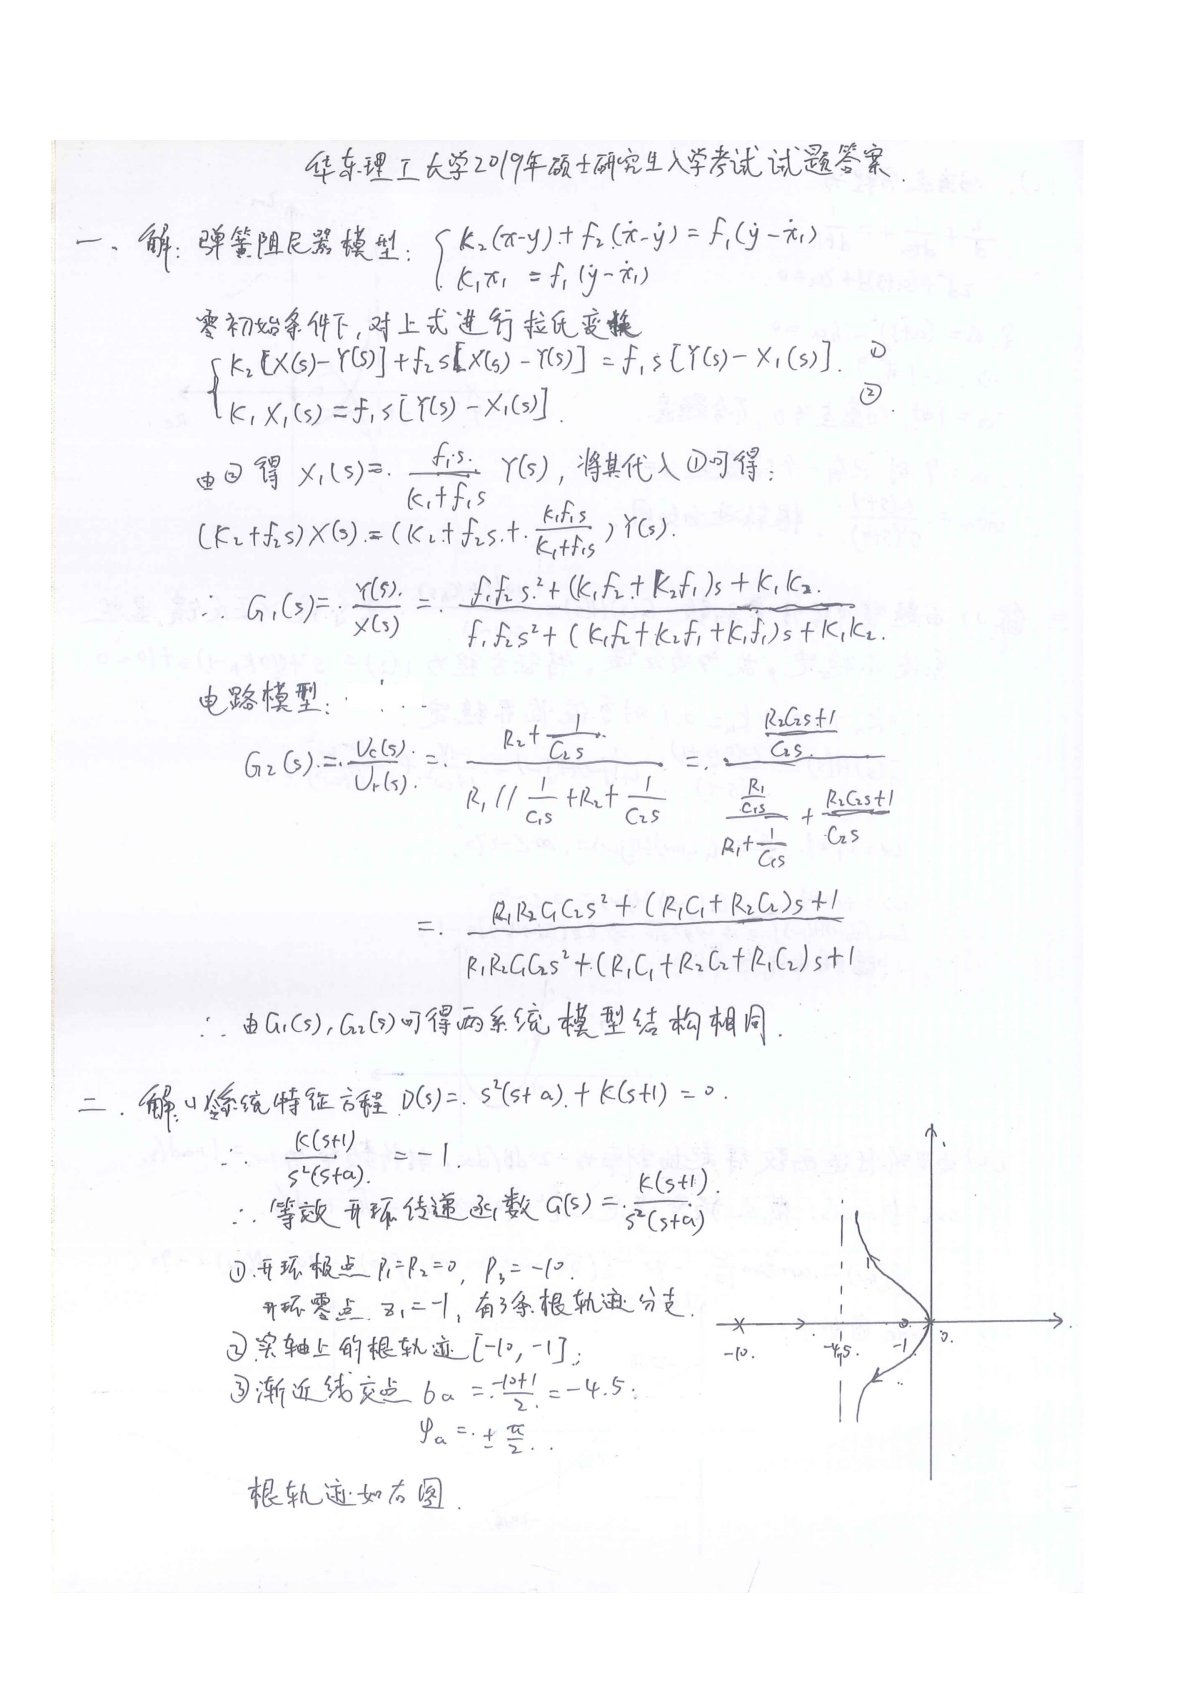 华东理工大学2019年硕士研究生入学考试试题答案.
一、解: 弹簧阻尼器模型: { K₂(x-y)+f₂(ẋ-ẏ)=f₁(ẏ-ẋ₁)
K₁x₁ = f₁(ẏ-ẋ₁)
零初始条件下,对上式进行拉氏变换
{ K₂[X(s)-Y(s)]+f₂s[X(s)-Y(s)]=f₁s[Y(s)-X₁(s)]. ①
K₁X₁(s)=f₁s[Y(s)-X₁(s)]. ②
由②得 X₁(s)= f₁s/(K₁+f₁s) Y(s), 将其代入①可得:
(K₂+f₂s)X(s)=(K₂+f₂s+ K₁f₁s/(K₁+f₁s))Y(s).
∴ G₁(s)= Y(s)/X(s) = (f₁f₂s²+(K₁f₂+K₂f₁)s+K₁K₂)/(f₁f₂s²+(K₁f₂+K₂f₁+K₁f₁)s+K₁K₂.)
电路模型:
G₂(s)= Uc(s)/Ur(s) = (R₂+1/(C₂s))/(R₁//1/(C₁s)+R₂+1/(C₂s)) = ((R₂C₂s+1)/(C₂s))/((R₁/(C₁s))/(R₁+1/(C₁s))+(R₂C₂s+1)/(C₂s))
= (R₁R₂C₁C₂s²+(R₁C₁+R₂C₂)s+1)/(R₁R₂C₁C₂s²+(R₁C₁+R₂C₂+R₁C₂)s+1)
∴ 由G₁(s),G₂(s)可得两系统模型结构相同.
二、解:(1)系统特征方程 D(s)= s²(s+a)+K(s+1)=0.
∴ K(s+1)/(s²(s+a)) = -1.
∴ 等效开环传递函数 G(s)= K(s+1)/(s²(s+a))
①开环极点 P₁=P₂=0, P₃=-10.
开环零点 z₁=-1, 有3条根轨迹分支.
②实轴上的根轨迹 [-10,-1];
③渐近线交点 σa = (-10+1)/2 = -4.5;
φa = ±π/2.
根轨迹如右图.
-10. -4.5. -1 0.